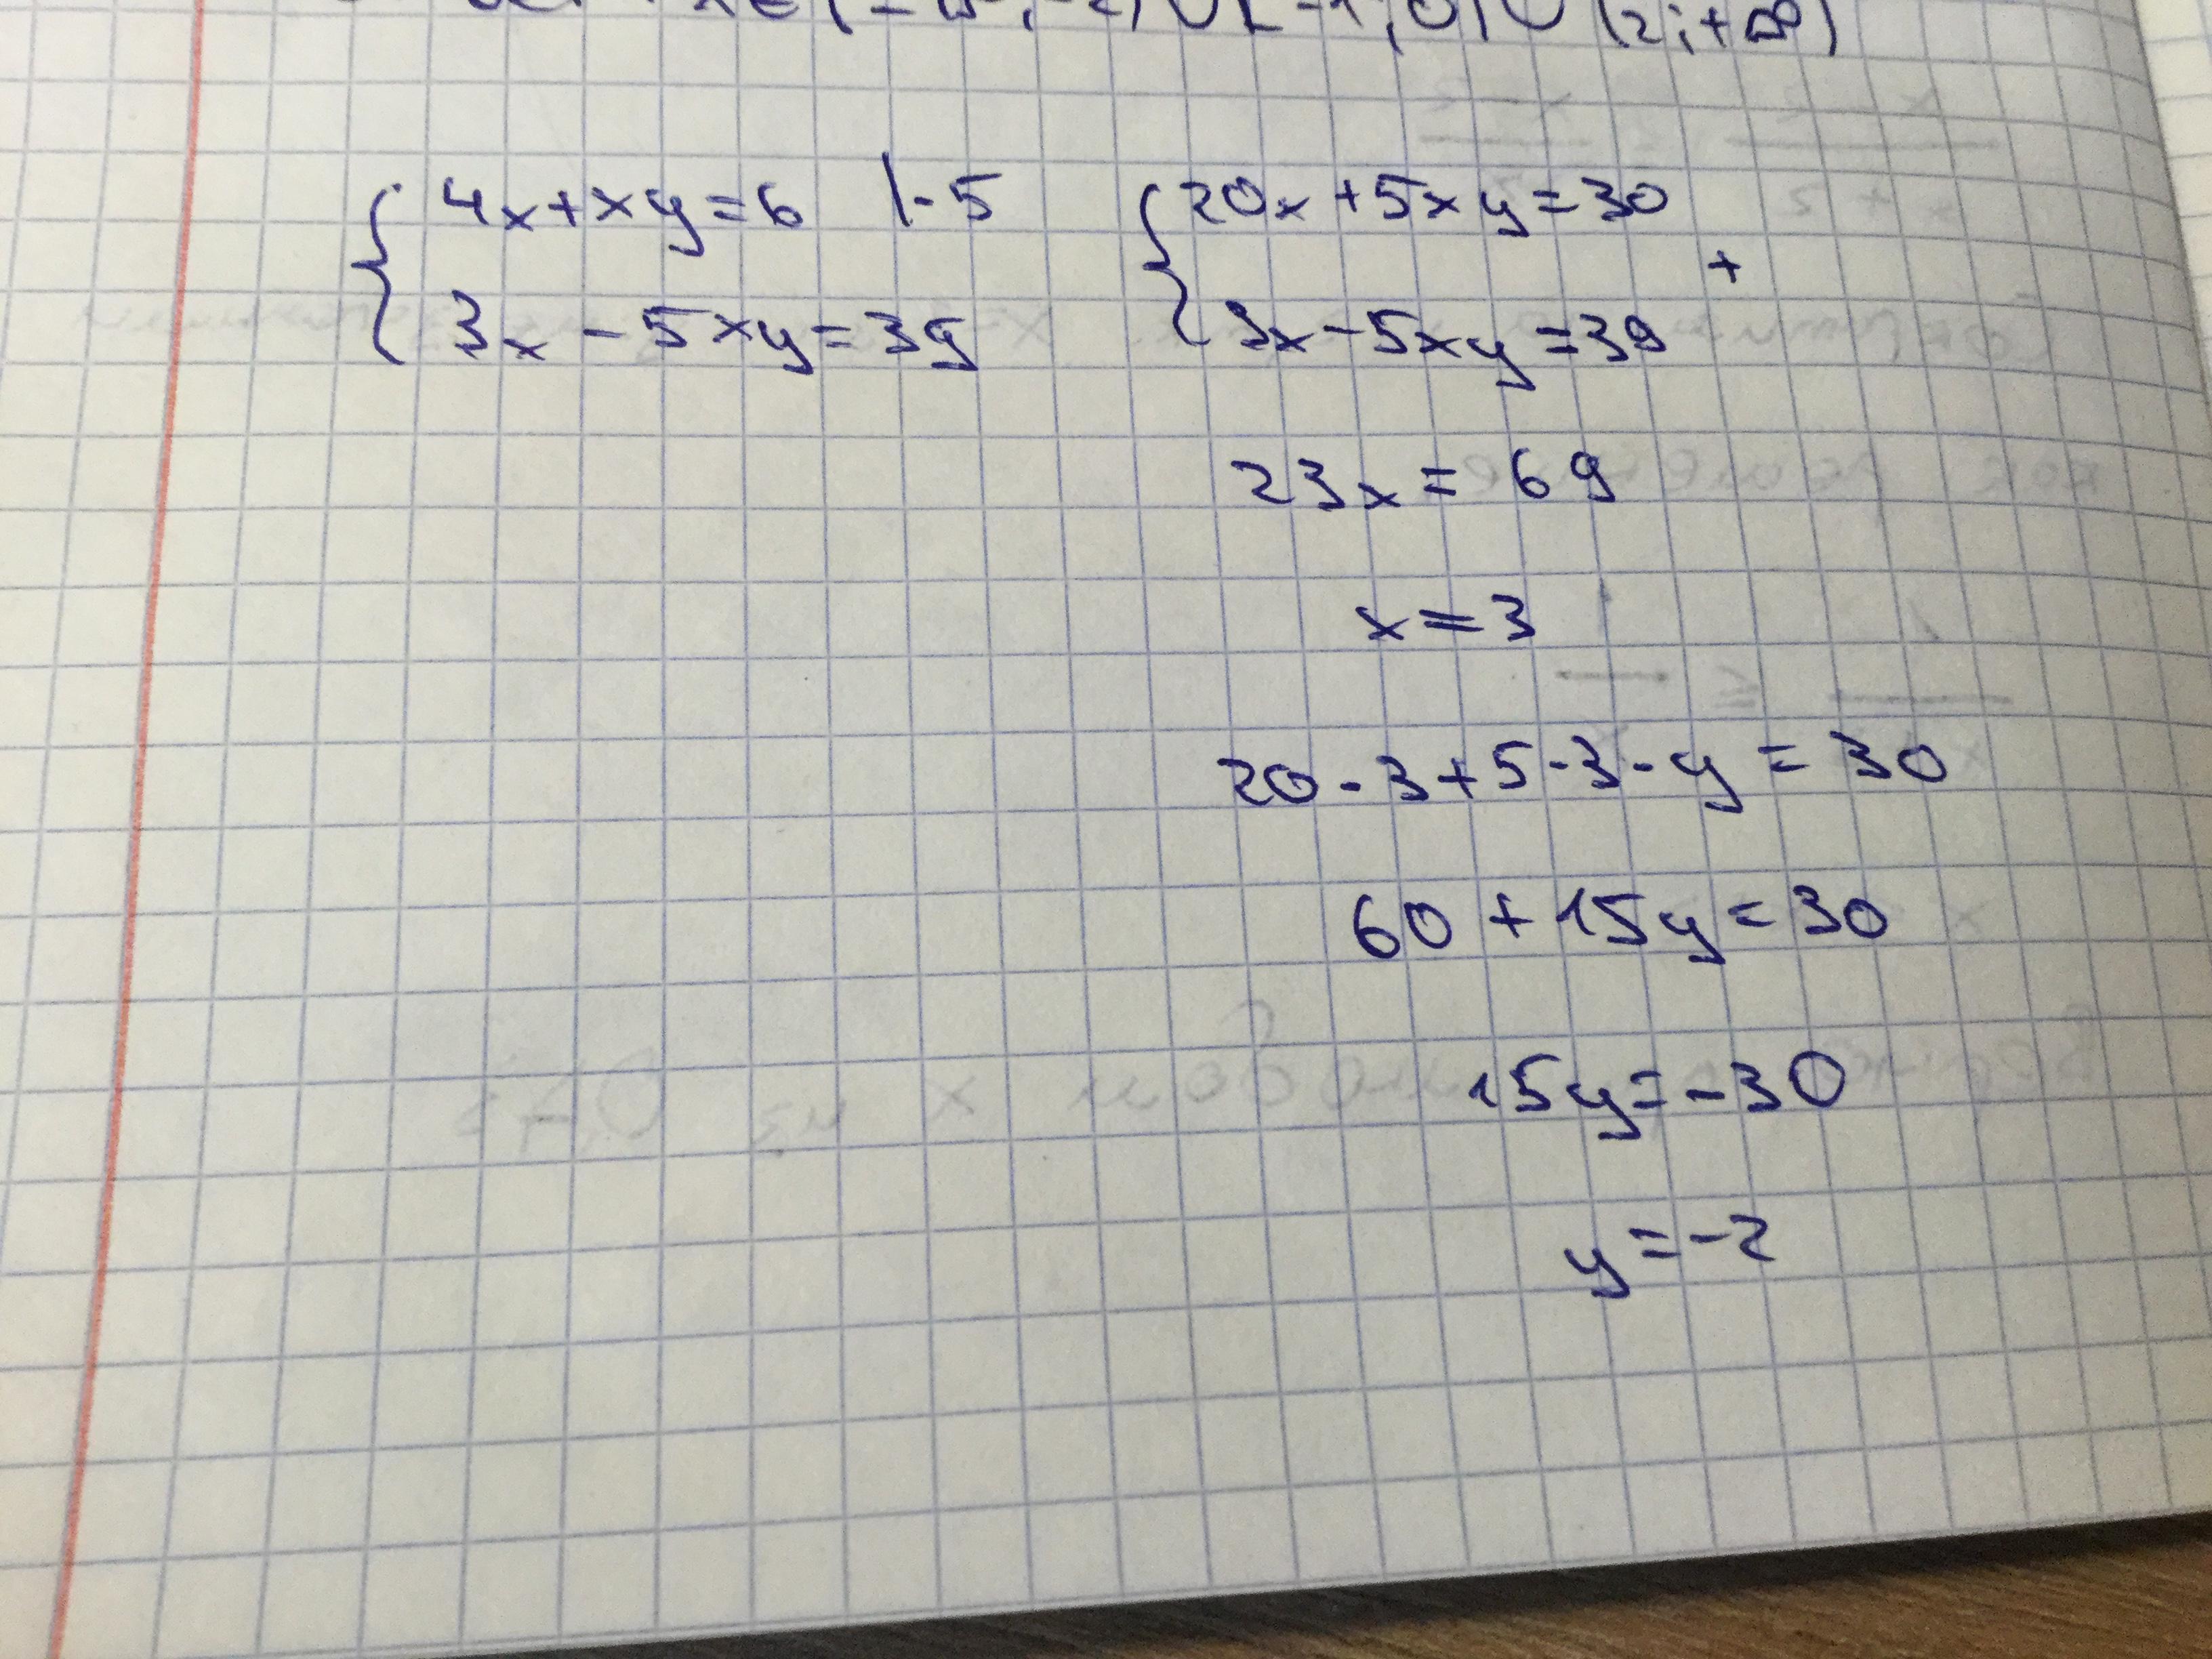 (2;+∞)
4x+xy=6 |·5
3x-5xy=39
20x+5xy=30
+
3x-5xy=39
23x=69
x=3
20·3+5·3·y=30
60+15y=30
15y=-30
y=-2